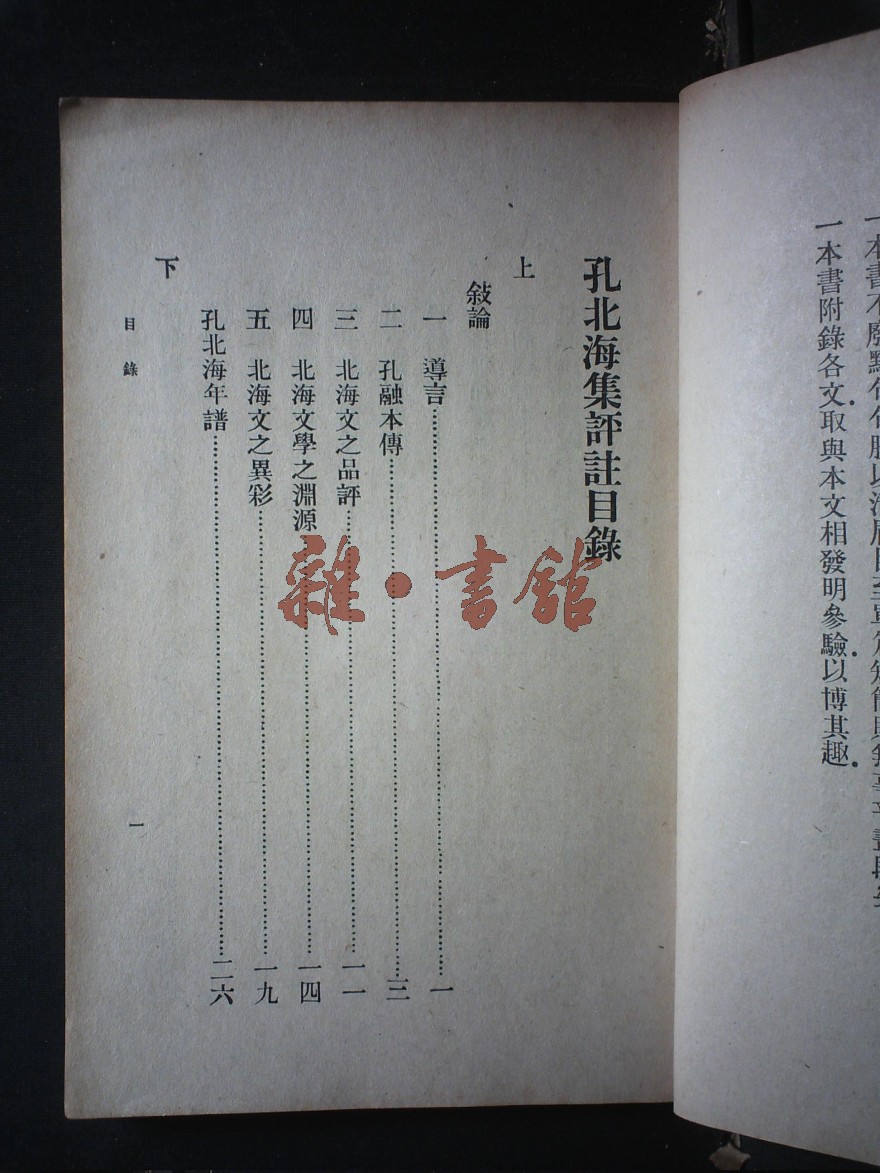 一本書不廢點句
一本書附錄各文取與本文相發明參驗以博其趣
孔北海集評註目錄
上
敍論
一 導言……一
二 孔融本傳……三
三 北海文之品評……一一
四 北海文學之淵源……一四
五 北海文之異彩……一九
孔北海年譜……二六
下
目錄
一
雜·書館